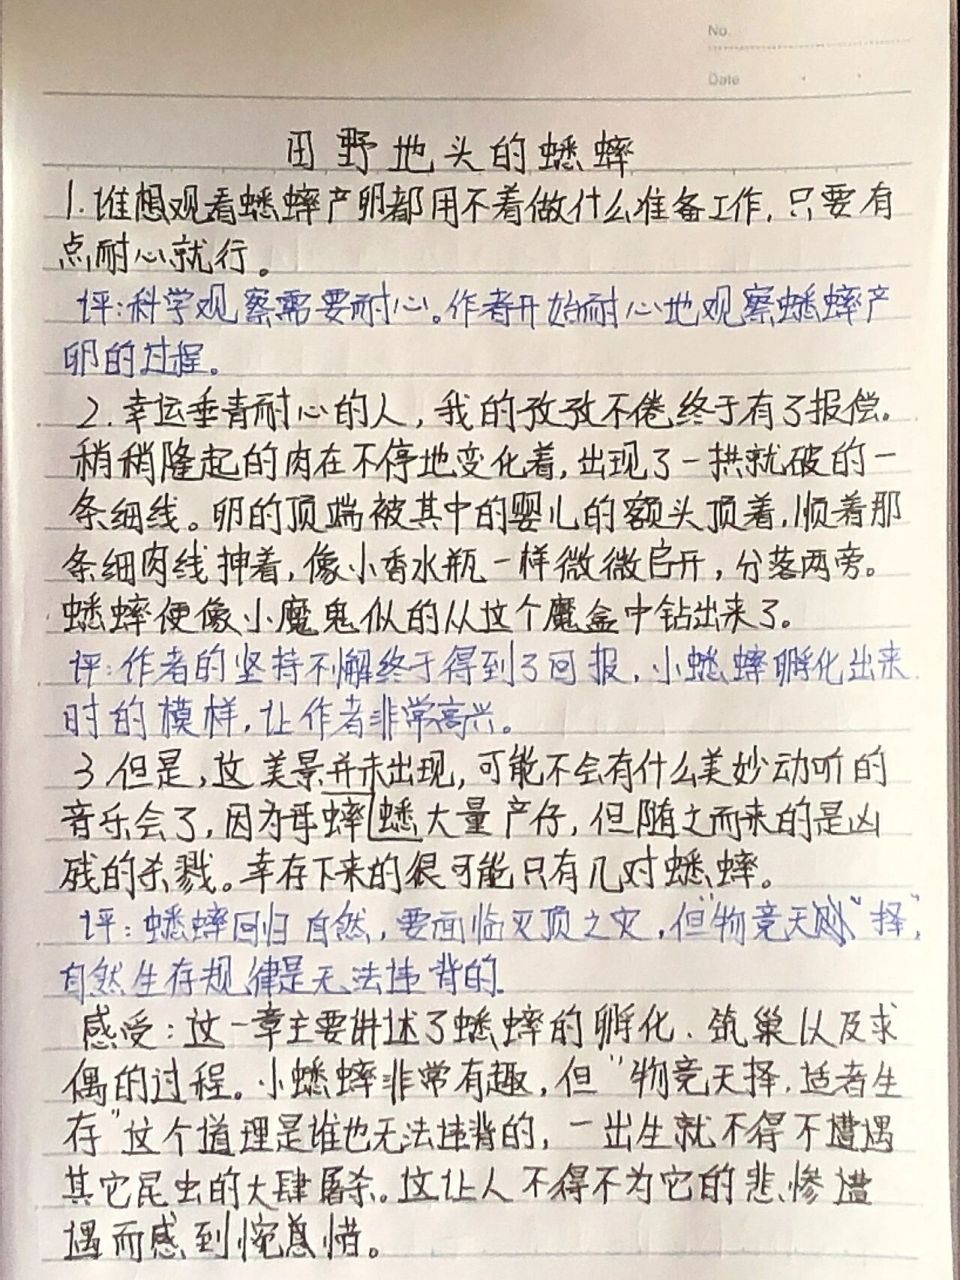 No.
Date
田野地头的蟋蟀
1.谁想观看蟋蟀产卵都用不着做什么准备工作,只要有
点耐心就行。
评:科学观察需要耐心。作者开始耐心地观察蟋蟀产
卵的过程。
2.幸运垂青耐心的人,我的孜孜不倦终于有了报偿。
稍稍隆起的肉在不停地变化着,出现了一拱就破的一
条细线。卵的顶端被其中的婴儿的额头顶着,顺着那
条细肉线抻着,像小香水瓶一样微微启开,分落两旁。
蟋蟀便像小魔鬼似的从这个魔盒中钻出来了。
评:作者的坚持不懈终于得到了回报,小蟋蟀孵化出来
时的模样,让作者非常高兴。
3.但是,这美景并未出现,可能不会有什么美妙动听的
音乐会了,因为母蟀蟋大量产仔,但随之而来的是凶
残的杀戮。幸存下来的很可能只有几对蟋蟀。
评:蟋蟀回归自然,要面临灭顶之灾,但"物竞天择",
自然生存规律是无法违背的.
感受:这一章主要讲述了蟋蟀的孵化、筑巢以及求
偶的过程。小蟋蟀非常有趣,但"物竞天择.适者生
存"这个道理是谁也无法违背的,一出生就不得不遭遇
其它昆虫的大肆屠杀。这让人不得不为它的悲惨遭
遇而感到惋惜。